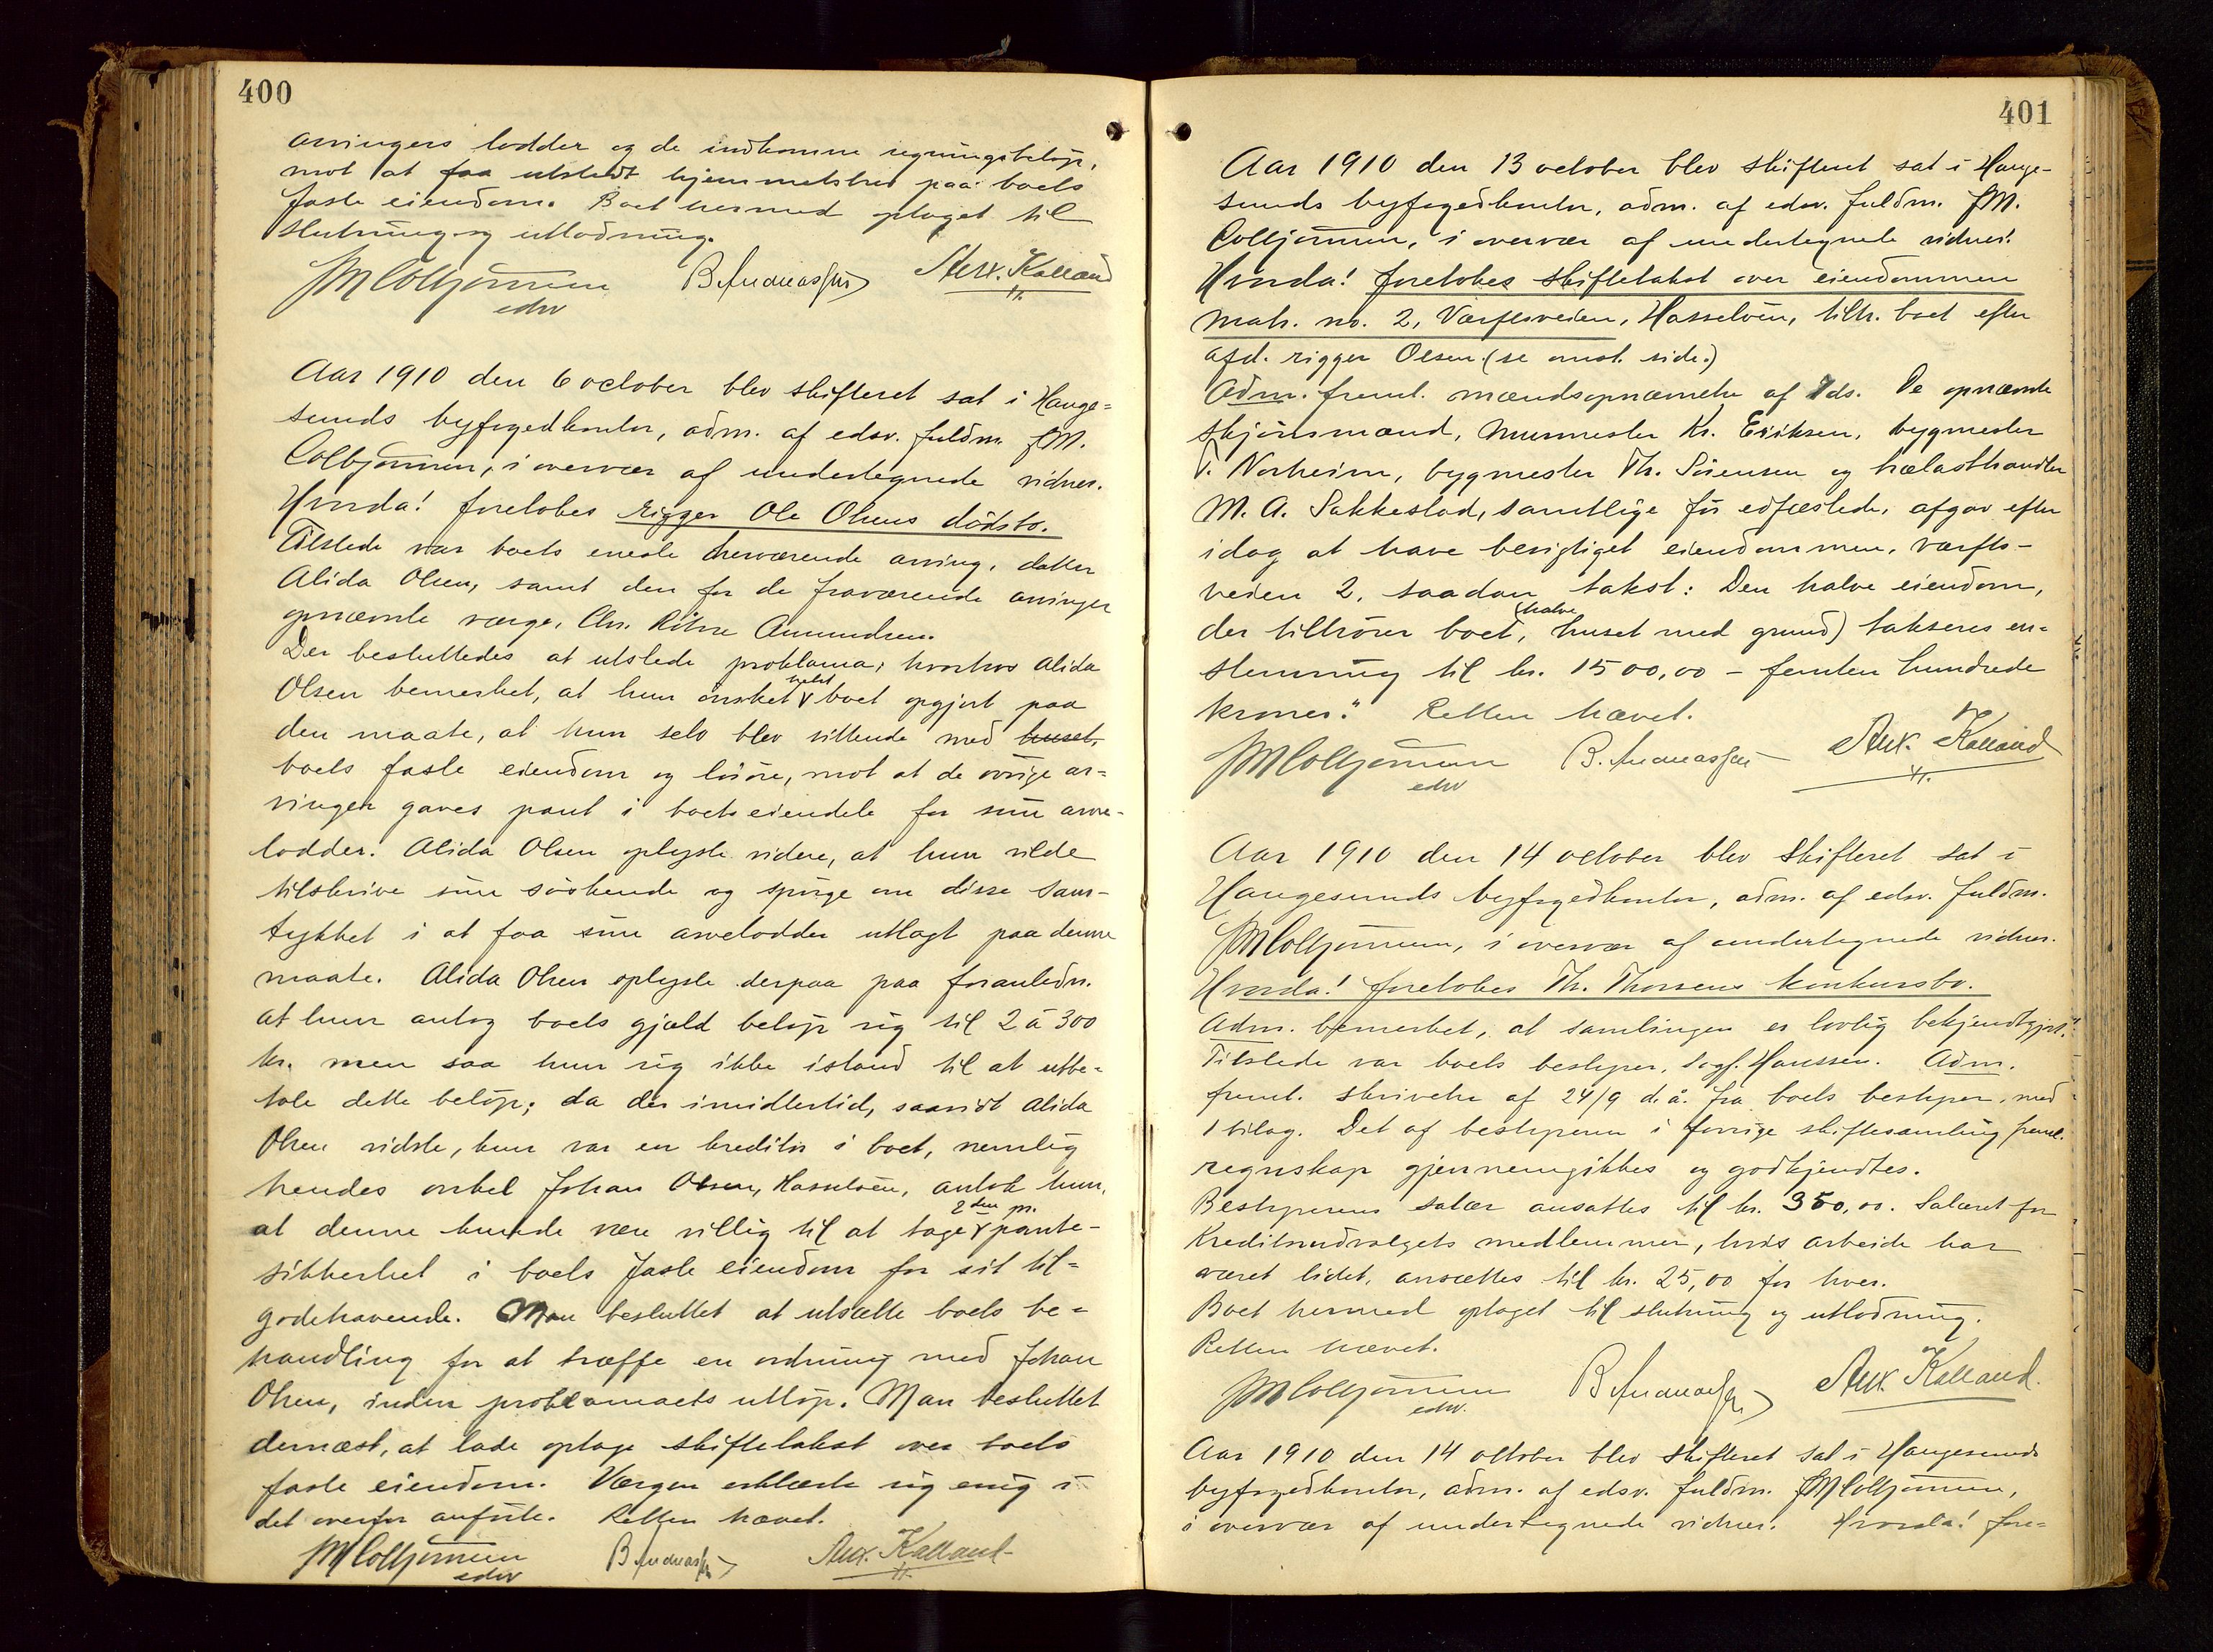 400
arvingers lodder og de indkomne regningsbeløp,
mot at faa utstedt hjemmelsbrev paa boets
faste eiendom. Boet hermed optaget til
slutning og utlodning.
JM Colbjørnsen B. Andreassen Alex. Kalland
edsv
Aar 1910 den 6 october blev skifteret sat i Hauge=
sunds byfogedkontor, adm. af edsv. fuldm. JM.
Colbjørnsen, i overvær af undertegnede vidner.
Hvorda! foretokes rigger Ole Olsens dødsbo.
Tilstede var boets eneste herværende arving, datter
Alida Olsen, samt den for de fraværende arvinger
opnævnte værge, Chr. Amundsen.
Der besluttedes at utstede proklama; hvorhos Alida
Olsen bemerket, at hun ønsket helst boet opgjort paa
den maate, at hun selv blev sittende med huset,
boets faste eiendom og løsøre, mot at de øvrige ar=
vinger gaves pant i boets eiendele for sine arve-
lodder. Alida Olsen oplyste videre, at hun vilde
tilskrive sine søskende og spørge om disse sam-
tykket i at faa sine arvelodder utlagt paa denne
maate. Alida Olsen oplyste derpaa paa foranledn.
at hun antog boets gjæld beløp sig til 2 à 300
kr. men saa hun sig ikke istand til at utbe-
tale dette beløp; da der imidlertid, saavidt Alida
Olsen vidste, kun var en kreditor i boet, nemlig
hendes onkel Johan Olsen, Hasseløen, antok hun,
at denne kunde være villig til at tage 2den pr. pante-
sikkerhet i boets faste eiendom for sit til-
godehavende. Man besluttet at utsætte boets be-
handling for at træffe en ordning med Johan
Olsen, inden proklamaets utløp. Man besluttet
dernæst, at lade optage skiftetakst over boets
faste eiendom. Værgen erklærte sig enig i
det ovenfor anførte. Retten hævet.
JM Colbjørnsen B. Andreassen Alex. Kalland
edsv
401
Aar 1910 den 13 october blev skifteret sat i Hauge-
sunds byfogedkontor, adm. af edsv. fuldm. JM.
Colbjørnsen, i overvær af undertegnede vidner.
Hvorda! foretokes skiftetakst over eiendommen
matr. no. 2, Værftsveien, Hasseløen, tilh. boet efter
afd. rigger Olsen. (se omst. side.)
Adm. freml. mændsopnævnelse af 7 ds. De opnævnte
skjønsmænd, murmester Kr. Eriksen, bygmester
T. Norheim, bygmester Th. Sørensen og trælasthandler
M. A. Sakkestad, samtlige før edfæstede, afgav efter
idag at have besigtiget eiendommen, værfts-
veien 2, saadan takst: Den halve eiendom,
der tilhører boet, (halve huset med grund) takseres en-
stemmig til kr. 1500,00 - femten hundrede
kroner." Retten hævet.
JM Colbjørnsen B. Andreassen Alex. Kalland
edsv
Aar 1910 den 14 october blev skifteret sat i
Haugesunds byfogedkontor, adm. af edsv. fuldm.
JM Colbjørnsen, i overvær af undertegnede vidner.
Hvorda! foretokes Th. Thorsens konkursbo.
Adm. bemerket, at samlingen er lovlig bekjendtgjort.
Tilstede var boets bestyrer, sagf. Hanssen. Adm.
freml. skrivelse af 24/9 d. å. fra boets bestyrer, med
1 bilag. Det af bestyreren i forrige skiftesamling freml.
regnskap gjennemgikkes og godkjendtes.
Bestyrerens salær ansattes til kr. 350,00. Salæret for
Kreditorudvalgets medlemmer, hvis arbeide har
været lidet, ansættes til kr. 25,00 for hver.
Boet hermed optaget til slutning og utlodning.
Retten hævet.
JM Colbjørnsen B. Andreassen Alex. Kalland.
edsv.
Aar 1910 den 14 oktober blev skifteret sat i Haugesunds
byfogedkontor, adm. af edsv. fuldm. JM Colbjørnsen,
i overvær af undertegnede vidner. Hvorda! fore=